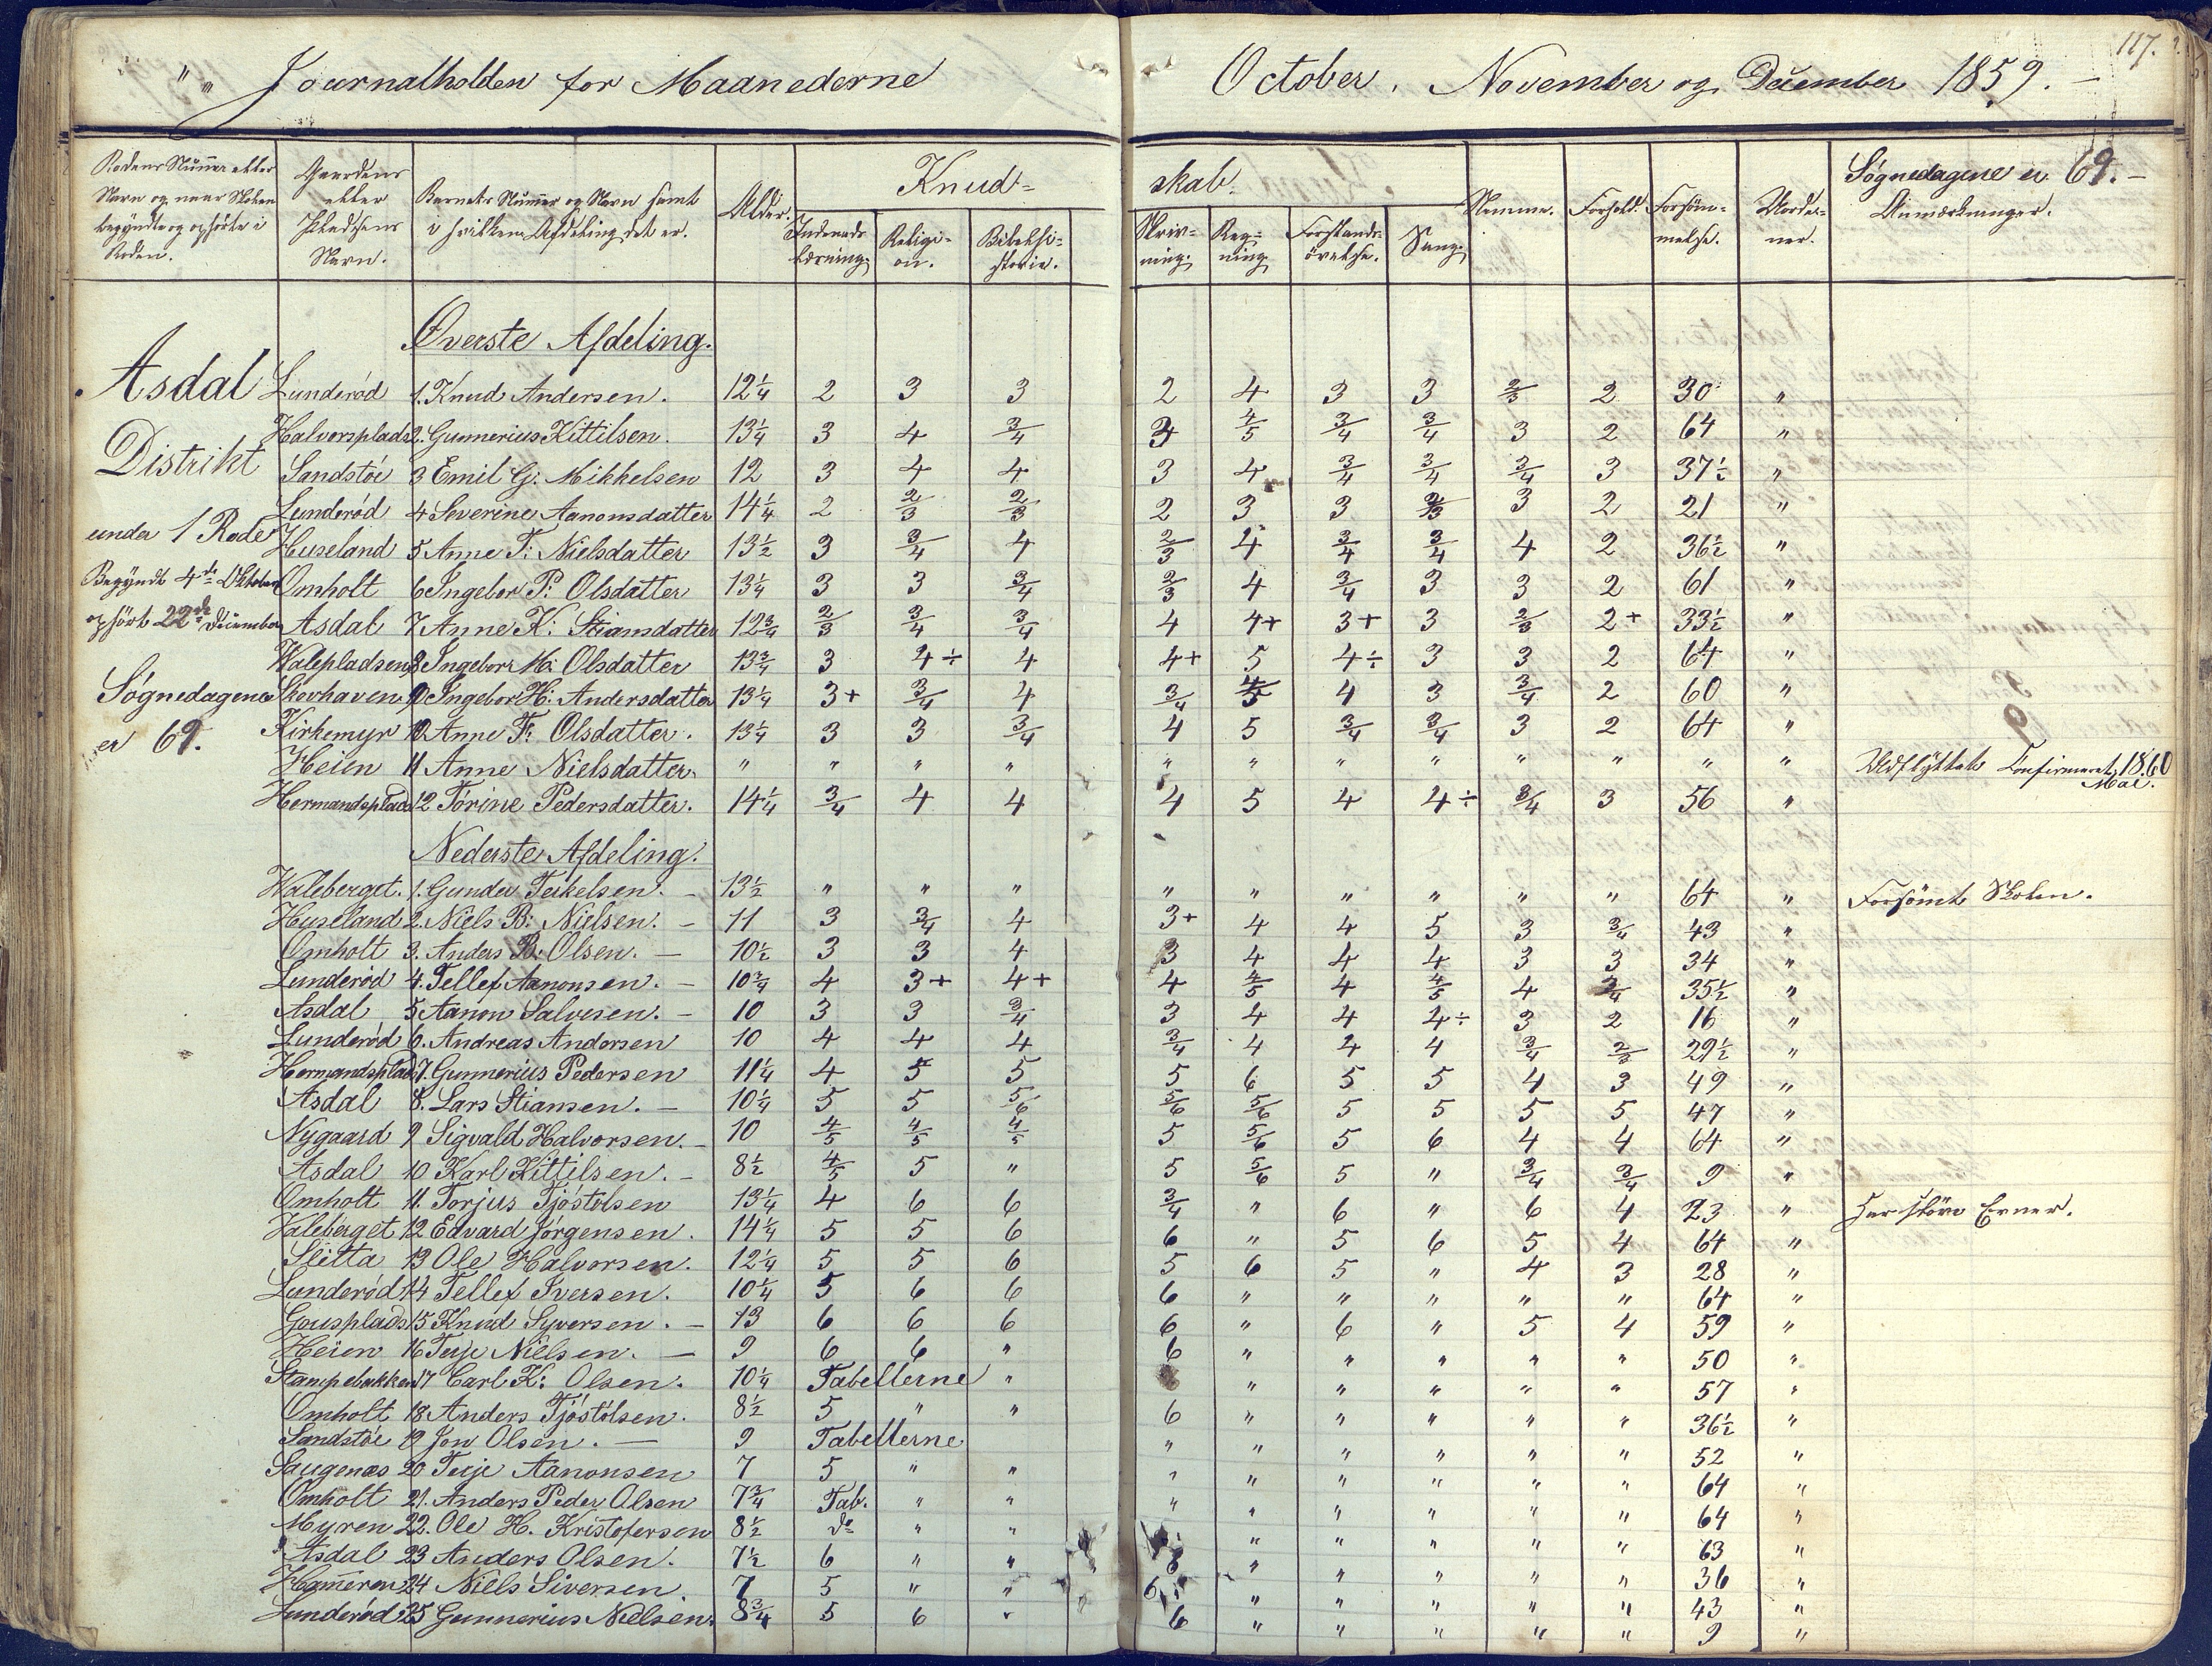 117.
Journalholden for Maanederne October, November og December 1859. –
Rodens Nummer eller Navn og naar Skolen begyndte og ophørte i Roden. | Gaardens eller Pladsens Navn. | Barnets Nummer og Navn samt i hvilken Afdeling det er. | Alder. | Kundskab. | Nemme. | Forhold. | Forsømmelse. | Anmærkninger.
Indenadslæsning. | Religion. | Bibelhistorie. | Skrivning. | Regning | Forstandsövelse. | Sang.
Søgnedagene er 69. –
Øverste Afdeling.
Asdal
Distrikt
under 1 Rode
Begyndt 4de Oktober
ophört 22de December
Søgnedagene
er 69.
Lunderød 1. Knud Andersen. 12 1/4 2 3 3 2 4 3 3 2/3 2 30 "
Halvorsplads 2. Gunnerius Kittilsen. 13 1/4 3 4 3/4 3 4/5 3/4 3/4 3 2 64 "
Sandstøe 3 Emil G. Mikkelsen 12 3 4 4 3 4 3/4 3/4 3/4 3 37 1/2 "
Lunderød 4 Severine Aanonsdatter 14 1/4 2 2/3 2/3 2 3 3 2/3 3 2 21 "
Huseland 5 Anne T: Nielsdatter 13 1/2 3 3/4 4 2/3 4 3/4 3/4 4 2 36 1/2 "
Omholt 6 Ingebor P: Olsdatter 13 1/4 3 3 3/4 2/3 4 3/4 3 3 2 61 "
Asdal 7 Anne K: Stiansdatter 12 3/4 2/3 3/4 3/4 4 4+ 3+ 3 2/3 2+ 33 1/2 "
Walepladsen 8 Ingebor M: Olsdatter 13 3/4 3 4÷ 4 4+ 5 4÷ 3 3 2 64 "
Skovhaven 9 Ingebor H: Andersdatter 13 1/4 3+ 3/4 4 3/4 4/5 4 3 3/4 2 60 "
Kirkemyr 10 Anne F: Olsdatter. 13 1/4 3 3 3/4 4 5 3/4 3/4 3 2 64 "
Heien 11 Anne Nielsdatter. " " " " " " " " " " " " Udflyttet Confirmeret 1860 Mai.
Hermandsplads 12 Tørine Pedersdatter. 14 1/4 3/4 4 4 4 5 4 4÷ 3/4 3 56 "
Nederste Afdeling.
Waleberget. 1. Gunder Terkelsen. – 13 1/2 " " " " " " " " " 64 " Forsömt Skolen.
Huseland 2. Niels B: Nielsen. – 11 3 3/4 4 3+ 4 4 5 3 3/4 43 "
Omholt 3. Anders B: Olsen. – 10 1/2 3 3 4 3 4 4 4 3 3 34 "
Lunderød 4. Tellef Aanonsen. – 10 3/4 4 3+ 4+ 4 4/5 4 4/5 4 3/4 35 1/2 "
Asdal 5 Aanon Salvesen. – 10 3 3 3/4 3 4 4 4÷ 3 2 16 "
Lunderød 6. Andreas Andersen 10 4 4 4 3/4 4 4 4 3/4 2/3 29 1/2 "
Hermandsplads 7. Gunnerius Pedersen 11 1/4 4 5 5 5 6 5 5 4 3 49 "
Asdal 8. Lars Stiansen. – 10 1/4 5 5 5/6 5/6 5/6 5 5 5 5 47 "
Nygaard 9 Sigvald Halvorsen. – 10 4/5 4/5 4/5 5 5/6 5 6 4 4 64 "
Asdal 10 Karl Kittilsen. – 8 1/2 4/5 5 " 5 5/6 5 " 3/4 3/4 9 "
Omholt 11. Torjus Tjøstolsen 13 1/4 4 6 6 3/4 " 6 " 6 4 23 "
Valeberget 12 Edvard Jørgensen. 14 1/4 5 5 6 6 " 5 6 5 4 64 "
Sletta 13 Ole Halvorsen. 12 1/4 5 5 6 5 6 5 " 4 3 28 "
Lunderød 14 Tellef Iversen. 10 1/4 5 6 6 6 " " " " " 64 "
15 Knud Syversen. – 13 6 6 6 6 " 6 " 5 4 59 "
Heien 16 Terje Nielsen. – 9 6 6 " 6 " " " " " 50 "
Stampebakken 17 Carl K: Olsen. 10 1/4 Tabellerne " " " " " " 57 "
Omholt 18 Anders Tjöstölsen. 8 1/2 5 " " 6 " " " " " 36 1/2 "
Sandstøe 19 Jon Olsen. – 9 Tabellerne " " " " " " 52 "
Saugenæs 20 Terje Aanonsen 7 5 " " " " " " " " 64 "
Omholt 21. Anders Peder Olsen 7 3/4 Tab. " " " " " " " " 64 "
Myren 22. Ole H. Kristofersen 8 1/2 do " " " " " " " 63 "
Asdal 23 Anders Olsen. 7 1/2 6 " " " " " " " 36 "
Hammeren 24 Niels Siversen 7 5 " " 6 " " " " " 43 "
Lunderød 25 Gunnerius Nielsen. 8 3/4 5 6 " 6 " " " " " 9 "